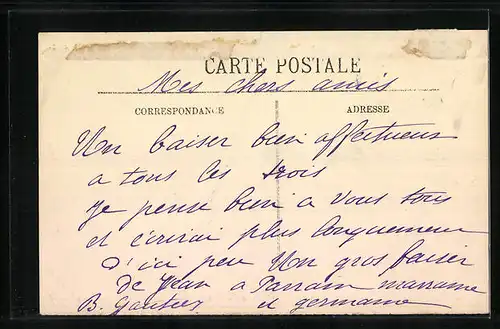 CARTE POSTALE
Mes chers amis
CORRESPONDANCE ADRESSE
Un baiser bien affectueux
a tous les trois
je pense bien a vous tous
et écrirai plus longuement
d'ici peu Un gros baiser
de Jean a Parrain marraine
B. Gautier et germaine